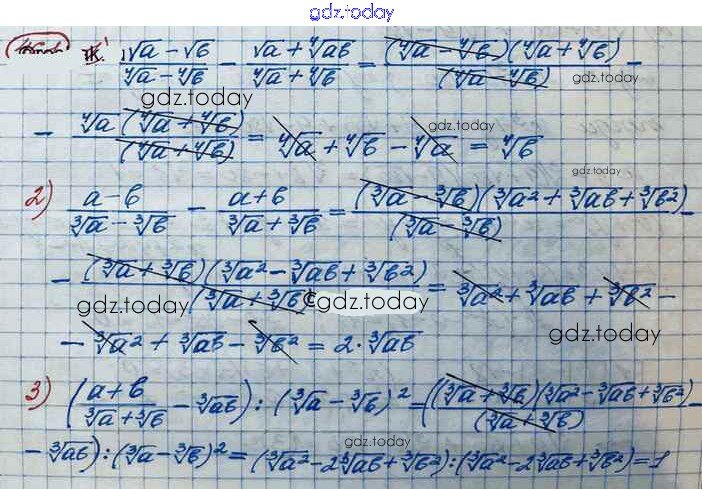 gdz.today
1) (√a - √b)/(⁴√a - ⁴√b) - (√a + ⁴√ab)/(⁴√a + ⁴√b) = ((⁴√a - ⁴√b)(⁴√a + ⁴√b))/(⁴√a - ⁴√b) -
gdz.today
gdz.today
- (⁴√a(⁴√a + ⁴√b))/(⁴√a + ⁴√b) = ⁴√a + ⁴√b - ⁴√a = ⁴√b
gdz.today
gdz.today
2) (a-b)/(³√a - ³√b) - (a+b)/(³√a + ³√b) = ((³√a - ³√b)(³√a² + ³√ab + ³√b²))/(³√a - ³√b) -
- ((³√a + ³√b)(³√a² - ³√ab + ³√b²))/(³√a + ³√b) = ³√a² + ³√ab + ³√b² -
gdz.today
©gdz.today
gdz.today
- ³√a² + ³√ab - ³√b² = 2·³√ab
3) ((a+b)/(³√a + ³√b) - ³√ab) : (³√a - ³√b)² = ((³√a + ³√b)(³√a² - ³√ab + ³√b²))/(³√a + ³√b) -
gdz.today
- ³√ab) : (³√a - ³√b)² = (³√a² - 2³√ab + ³√b²) : (³√a² - 2³√ab + ³√b²) = 1